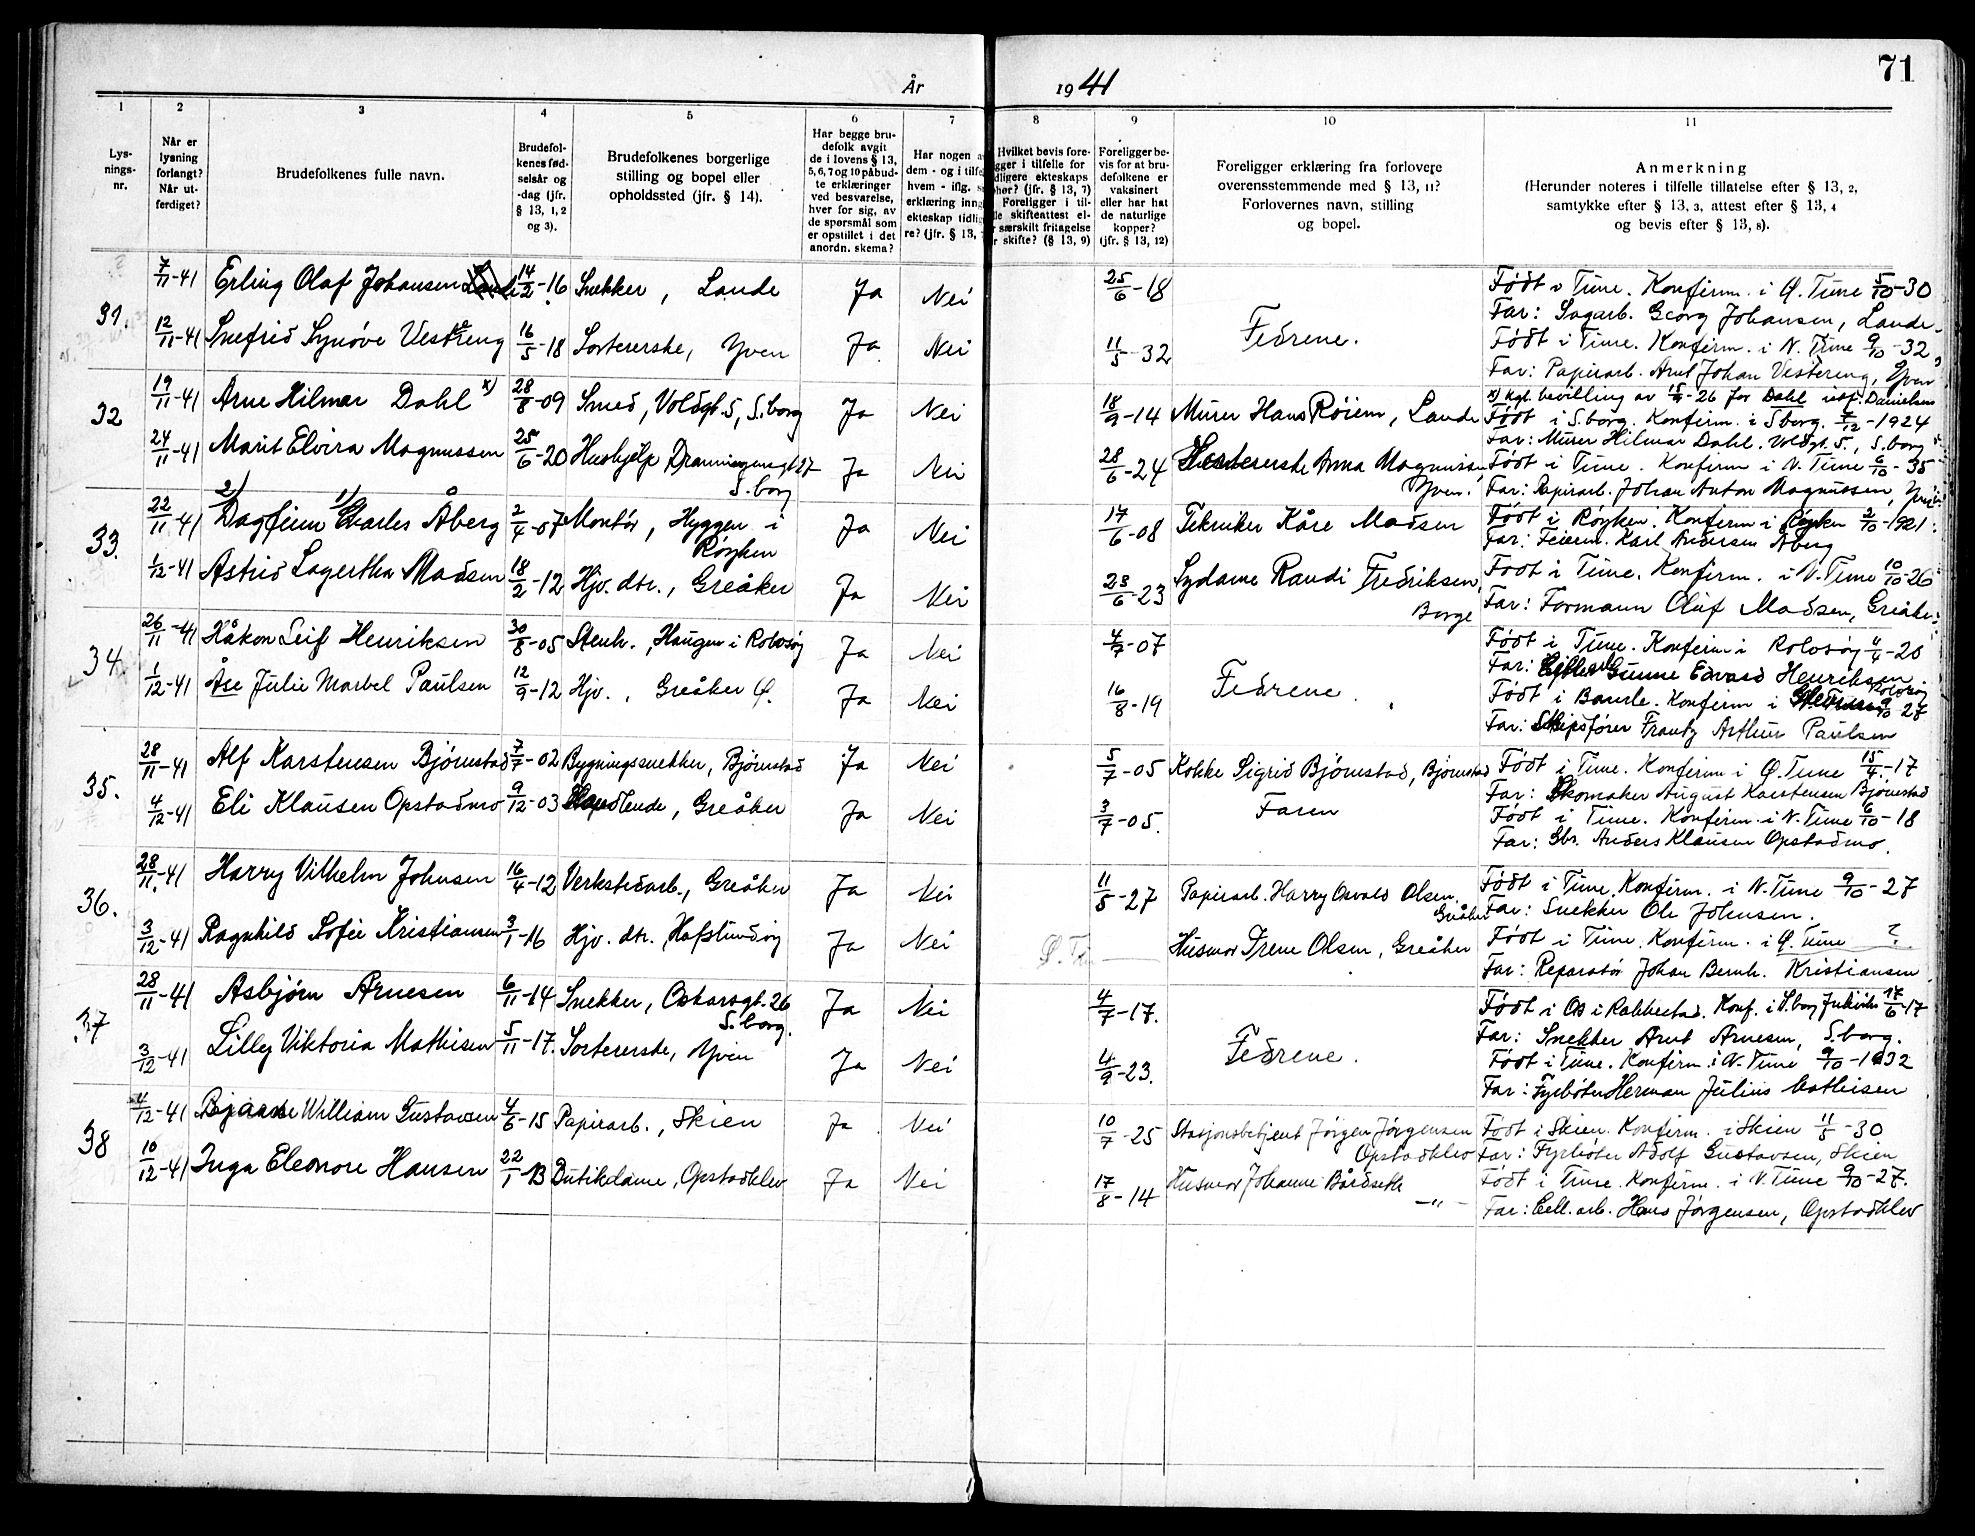 71
År 1941
1
2
3
4
5
6
7
8
9
10
11
Lys-
nings-
nr.
Når er
lysning
forlangt?
Når ut-
ferdiget?
Brudefolkenes fulle navn.
Brudefol-
kenes fød-
selsår og
-dag (jfr.
§ 13, 1, 2
og 3).
Brudefolkenes borgerlige
stilling og bopel eller
opholdssted (jfr. § 14).
Har begge bru-
defolk avgit
de i lovens § 13,
5, 6, 7 og 10 påbud-
te erklæringer
ved besvarelse,
hver for sig, av
de spørsmål som
er opstillet i det
anordn. skema?
Har nogen a
dem - og i tilfe
hvem - iflg. s
erklæring inng
ekteskap tidlig
re? (jfr. § 13,
Hvilket bevis fore-
gger i tilfelle for
dligere ekteskaps
hør? (jfr. § 13, 7)
Foreligger i til-
le skifteattest el-
r særskilt fritagelse
r skifte? (§ 13, 9)
Foreligger be-
vis for at bru-
defolkene er
vaksinert
eller har hat
de naturlige
kopper?
(jfr. § 13, 12)
Foreligger erklæring fra forlovere
overensstemmende med § 13, 11?
Forlovernes navn, stilling
og bopel.
Anmerkning
(Herunder noteres i tilfelle tillatelse efter § 13, 2,
samtykke efter § 13, 3, attest efter § 13, 4
og bevis efter § 13, 8).
31.
7/11-41 Erling Olaf Johansen 14/2-16 Snekker, Lande Ja Nei 25/6-18
Født i Tune. Konfirm. i Ø. Tune 5/10-30
Far: Sagarb. Georg Johansen, Lande
Fedrene.
12/11-41 Snefrid Synøve Vestreng 16/5-18 Sortererske, Yven Ja Nei 11/5-32
Født i Tune. Konfirm. i N. Tune 9/10-32
Far: Papirarb. Arnt Johan Vestereng, Yven
32
19/11-41 Arne Hilmar Dahl x) 28/8-09 Smed, Voldgt. 5, S.borg Ja Nei 18/9-14 Murer Hans Røiem, Lande
x) Kgl. bevilling av -26 for Dahl istf. Danielsen
Født i S.borg. Konfirm. i S.borg. 7/12-1924
Far: Murer Hilmar Dahl. Voldgt. 5., S.borg
24/11-41 Marit Elvira Magnussen 25/6-20 Hushjelp Dronningensgt 27 Ja Nei 28/6-24 Sortererske Anna Magnussen
S.borg
Yven.
Født i Tune. Konfirm i N. Tune 6/10-35
Far: Papirarb. Johan Anton Magnussen, Yven
33.
22/11-41 2) Dagfinn 1) Charles Åberg 2/4-07 Montør, Hyggen i Ja Nei 17/6-08 Tekniker Kåre Madsen
Røyken
Født i Røyken. Konfirm i Røyken 2/10-1921.
Far: Feierm. Karl Andersen Åberg
1/12-41 Astrid Lagertha Madsen 18/2-12 Hjv. dtr., Greåker Ja Nei 23/6-23 Sydame Randi Fredriksen,
Borge
Født i Tune. Konfirm. i N. Tune 10/10-26
Far: Formann Oluf Madsen, Greåker
34.
26/11-41 Håkon Leif Henriksen 30/8-05 Stenh., Haugen i Rolvsøy Ja Nei 4/7-07
Født i Tune. Konfirm i Rolvsøy 4/4-20
Far: Gunne Edvard Henriksen.
Rolvsøy
Fedrene.
1/12-41 Åse Julie Marbel Paulsen 12/9-12 Hjv., Greåker Ø. Ja Nei 16/8-19
Født i Bamle. Konfirm i 9/10 27
Far: Skipsfører Frantz Arthur Paulsen
35.
28/11-41 Alf Karstensen Bjørnstad 7/7-02 Bygningssnekker, Bjørnstad Ja Nei 5/7-05 Kokke Sigrid Bjørnstad, Bjørnstad
Født i Tune. Konfirm i Ø. Tune 15/4-17
Far: Skomaker August Karstensen Bjørnstad
4/12-41 Eli Klausen Opstadmo 9/12-03 Handlende, Greåker Ja Nei 3/7-05. Faren
Født i Tune. Konfirm. i N. Tune 6/10-18
Far: Gbr. Anders Klausen Opstadmo.
36.
28/11-41 Harry Vilhelm Johnsen 16/4-12 Verkstedarb., Greåker Ja Nei 11/5-27 Papirarb. Harry Osvald Olsen.
Greåker
Født i Tune. Konfirm. i N. Tune 9/10-27
Far: Snekker Ole Johnsen.
3/12-41 Ragnhild Sofie Kristiansen 3/1-16 Hjv. dtr., Hafslundsøy Ja Nei Husmor Irene Olsen, Greåker
Født i Tune. Konfirm. i Ø. Tune ?
Far: Reparatør Johan Bernh. Kristiansen
37
28/11-41 Asbjørn Arnesen 6/11-14 Snekker, Oskarsgt. 26 Ja Nei 4/7-17.
S.borg.
Født i Os i Rakkestad. Konf. i S.borg frikirke 17/6-17
Far: Snekker Arnt Arnesen, S.borg.
Fedrene.
3/12-41 Lilly Viktoria Mathisen 5/11-17. Sortererske, Yven Ja Nei 4/9-23.
Født i Tune. Konfirm. i N. Tune 9/10-1932
Far: Fyrbøter Herman Julius Mathisen
38
4/12-41 Bjarne William Gustavsen 4/6-15 Papirarb., Skien Ja Nei 10/7-25 Stasjonsbetjent Jørgen Jørgensen
Opstadklev
Født i Skien. Konfirm. i Skien 11/5-30
Far: Fyrbøter Adolf Gustavsen, Skien
10/12-41 Inga Eleonore Hansen 22/1-13 Butikdame, Opstadklev Ja Nei 17/8-14 Husmor Johanne Bårdseth
—"—
Født i Tune. Konfirm. i N. Tune 9/10-27.
Far: Cell. arb. Hans Jørgensen, Opstadklev